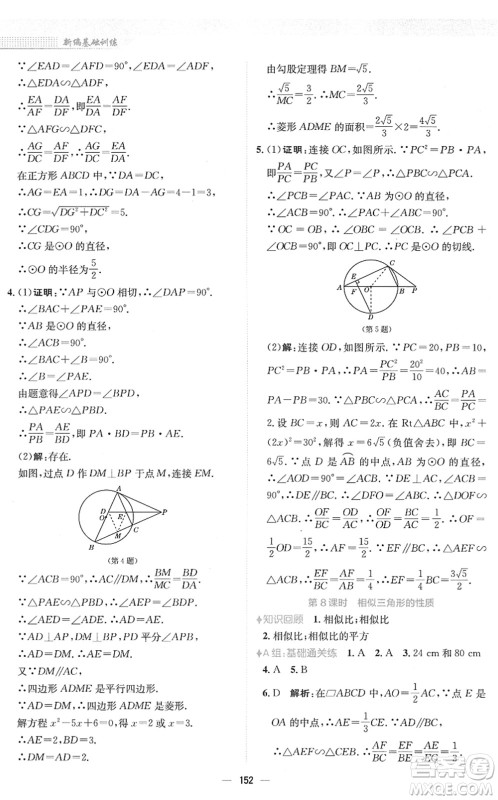 新编基础训练
∵∠EAD=∠AFD=90°,∠EDA=∠ADF,
∴△EDA∽△ADF.
∴EA/AF=DA/DF,即EA/DA=AF/DF.
∵△AFG∽△DFC,
∴AG/DC=AF/DF.
∴AG/DC=EA/DA.
在正方形 ABCD 中,DA=DC,
∴AG=EA=1,DG=DA-AG=4-1=3,
∴CG=√(DG²+DC²)=5.
∵∠CDG=90°,
∴CG 是⊙O 的直径,
∴⊙O 的半径为5/2.
4. (1)证明:∵AP 与⊙O 相切,∴∠DAP=90°.
∵AB 是⊙O 的直径,
∴∠ACB=90°.
∴∠ACB=∠DAP.
由题意得∠PAE=∠PBD,
∴△PAE∽△PBD.
∴PA/PB=AE/BD.∴PA·BD=PB·AE.
(2)解:存在.
如图,过点 D 作 DM⊥PB 于点 M,连接 EM.
A
D
O
E
P
M
B
(第 4 题)
∵∠ACB=90°,∴AC∥DM.∴BM/MC=BD/DA.
∵△PAE∽△PBD,∴BD/AE=PB/PA.
∵△DAP≌△DMP,∴DA=DM.
∵AC∥DM,∴四边形 ADME 为平行四边形.
∴四边形 ADME 是菱形.
解方程 x²-5x+6=0,得 x=2 或 x=3.
∴AE=2,BD=3.∴DM=AE=2.
由勾股定理得 BM=√5.
∴√5/MC=3/2.∴MC=2√5/3.
∴菱形 ADME 的面积=2√5/3×2=4√5/3.
5. (1)证明:连接 OC,如图所示.∵PC²=PB·PA,
即PA/PC=PC/PB.又∵∠P=∠P,∴△PBC∽△PCA.
∴∠PCB=∠PAC.∵AB 为⊙O 的直径,
∴∠ACB=90°,∴∠A+∠ABC=90°.∵
OC=OB,∴∠OBC=∠OCB.∴∠PCB+
∠OCB=90°.∴OC⊥PC.∴PC 是⊙O 的切线.
C
A
O
B
P
D
(第 5 题)
(2)解:连接 OD,如图所示.∵PC=20,PB=
10,PC²=PB·PA,∴PA=PC²/PB=20²/10=40.∴AB=
PA-PB=30.∵△PBC∽△PCA,∴AC/BC=PA/PC=
2.设 BC=x,则 AC=2x,在 Rt△ABC 中,x²+
(2x)²=30²,∴x=6√5(负值舍去),∴BC=
6√5.∵点 D 是AB的中点,AB 为⊙O 的直径,
∴∠AOD=90°.∵DE⊥AC,∴∠AEF=90°.
∵∠ACB=90°,∴DE∥BC,∴∠DFO=
∠ABC.∴△DOF∽△ACB.∴OF/OD=BC/AC=1/2.∴OF=
1/2OD=15/2.∴AF=15/2.∵EF∥BC,∴EF/BC=AF/AB=
1/4.∴EF=1/4BC=3√5/2.
第 8 课时 相似三角形的性质
知识回顾 1. 相似比;相似比;相似比
2. 相似比;相似比的平方
A 组:基础通关练 1. A 2. A 3. 24 cm 和 80 cm
4. A 5. B
6. D 解析:在□ABCD 中,AO=1/2AC,∵点 E 是
OA 的中点,∴AE=1/3CE.∵AD∥BC,
∴△AFE∽△CBE.∴AF/BC=AE/CE=1/3.
152